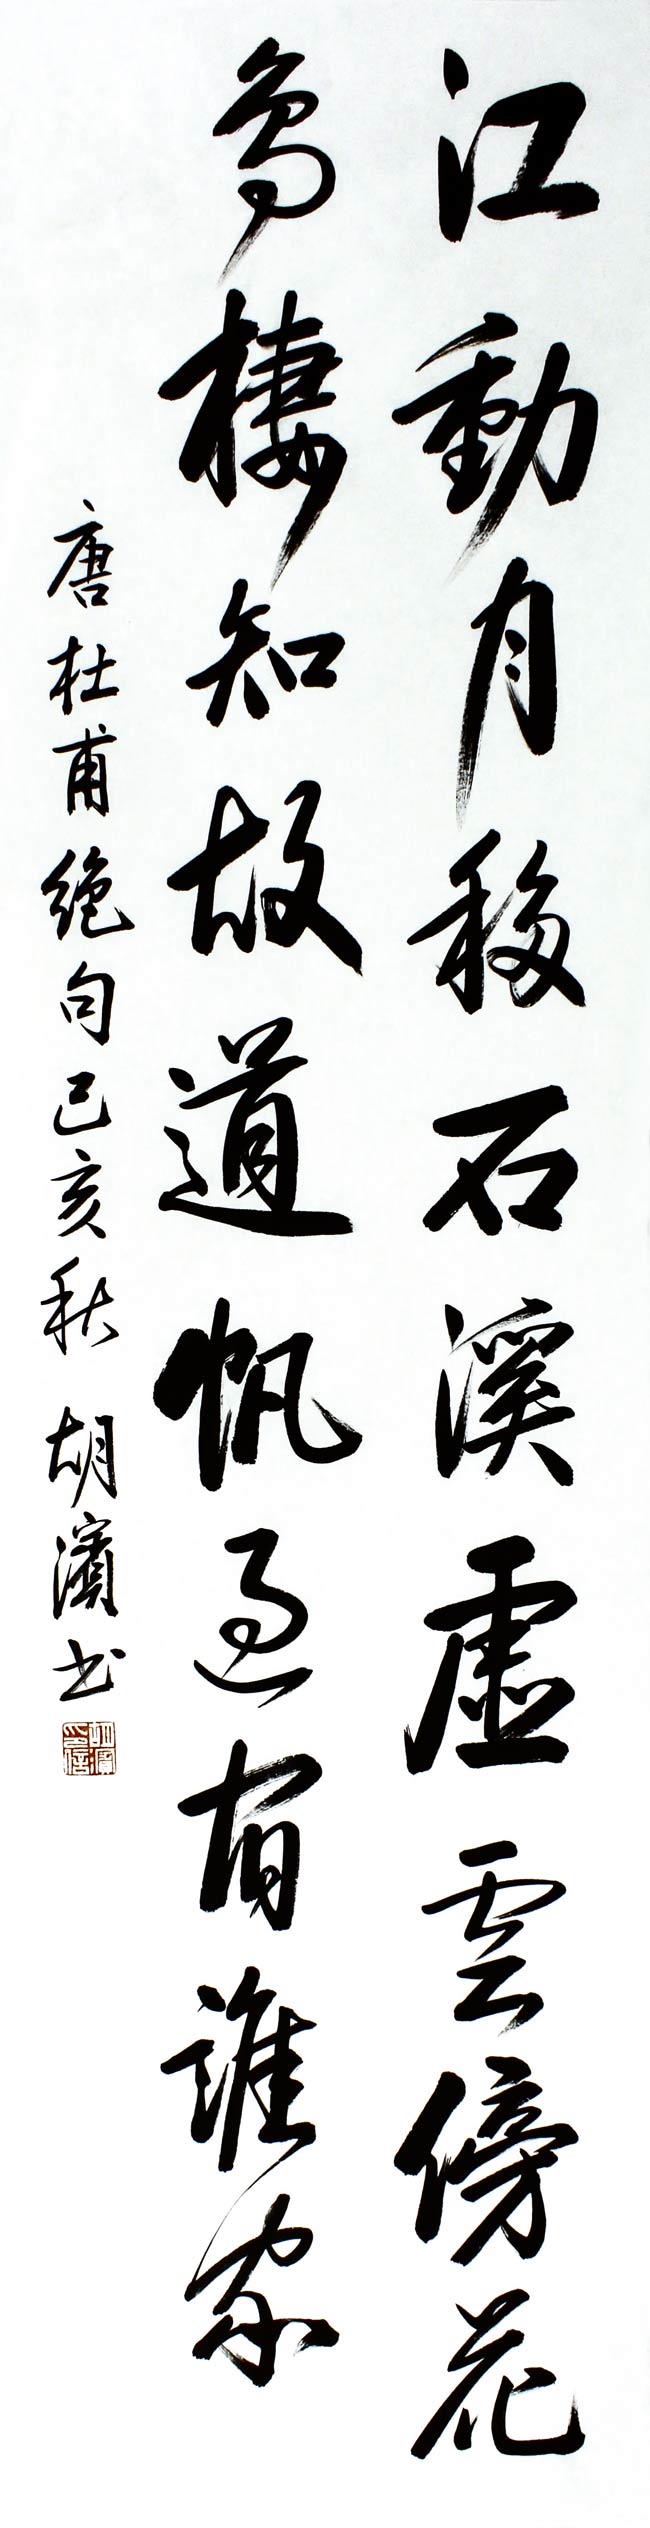 江動月移石溪虛雲傍花
鳥棲知故道帆過宿誰家
唐杜甫絶句己亥秋 胡濱书
胡濱印信